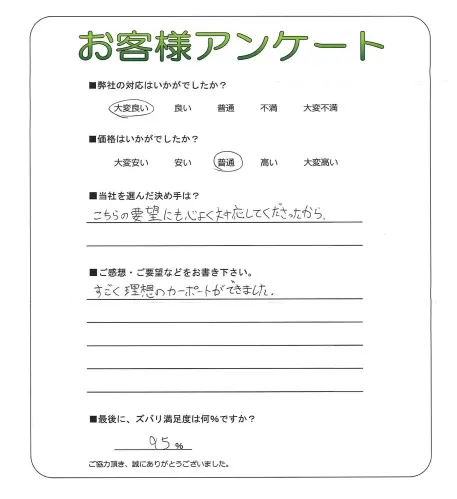 お客様アンケート
■弊社の対応はいかがでしたか？
大変良い 良い 普通 不満 大変不満
■価格はいかがでしたか？
大変安い 安い 普通 高い 大変高い
■当社を選んだ決め手は？
こちらの要望にも心よく対応してくださったから。
■ご感想・ご要望などをお書き下さい。
すごく理想のカーポートができました。
■最後に、ズバリ満足度は何％ですか？
95％
ご協力頂き、誠にありがとうございました。